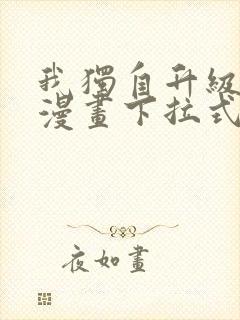 我獨自升級
漫畫下拉式
夜如畫